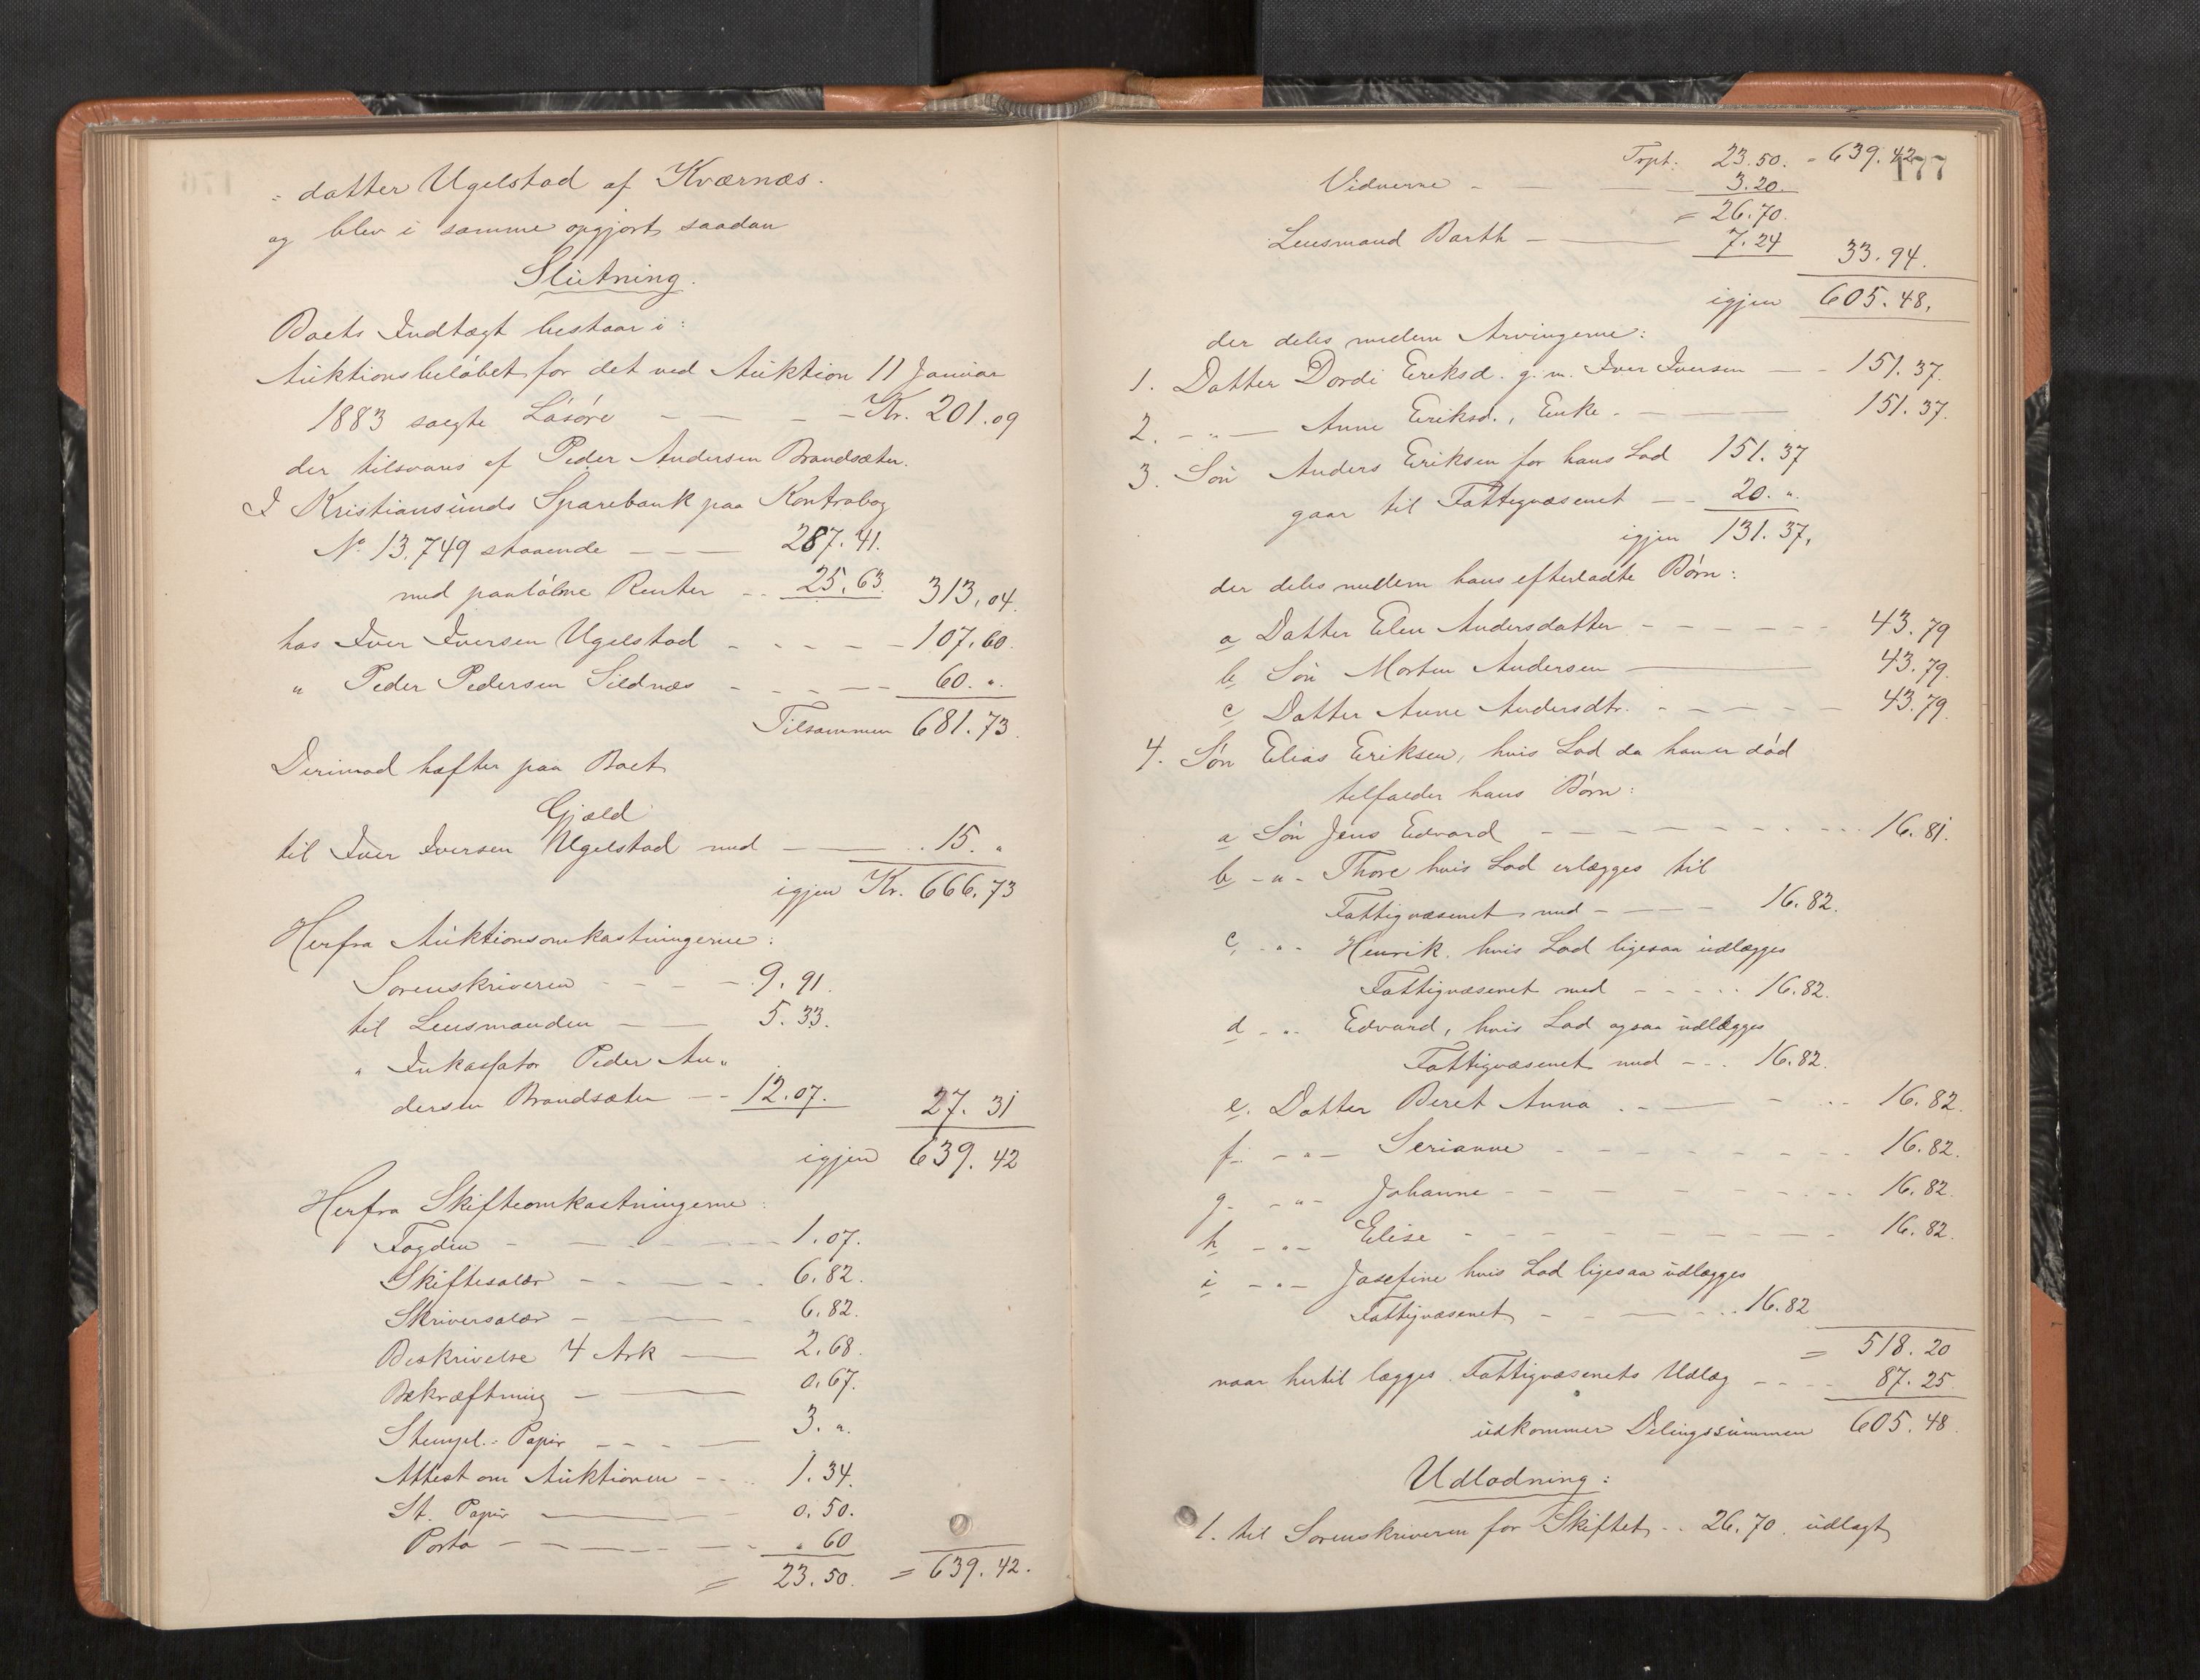 - datter Ugelstad af Kværnæs.
og blev i samme opgjort saadan
Slutning.
Boets Indtægt bestaar i:
Auktionsbeløbet for det ved Auktion 11 Januar
1883 solgte Løsøre - - - - Kr. 201.09
der tilsvares af Peder Andersen Brandsæter.
I Kristiansunds Sparebank paa Kontrabog
No 13.749 staaende - - - 287.41.
med paaløbne Renter - - 25.63. 313.04.
hos Iver Iversen Ugelstad - - - - - 107.60.
" Peder Pedersen Sildnæs - - - - 60. ".
Tilsammen 681.73.
Derimod hæfter paa Boet
Gjæld
til Iver Iversen Ugelstad med - - 15. "
igjen Kr. 666.73
Herfra Auktionsomkostningerne:
Sorenskriveren - - - - 9.91.
til Lensmanden - - 5.33.
" Inkassator Peder An-
dersen Brandsæter - - 12.07. 27.31
igjen 639.42
Herfra Skifteomkostningerne:
Fogden - - - - - 1.07.
Skiftesalær - - - - - 6.82.
Skriversalær - - - - 6.82.
Beskrivelse 4 Ark - 2.68.
Bekræftning - - 0.67.
Stempl.-Papir - - - - 3. ".
Attest om Auktionen - - 1.34.
St. Papir - - 0.50.
Porto - - - - - ". 60
= 23.50. = 639.42.
177
Trpt. 23.50. = 639.42
Vidnerne - - - 3.20.
= 26.70.
Lensmand Barth - - 7.24 33.94.
igjen 605.48.
der deles mellem Arvingerne:
1. Datter Dordi Eriksd. g. m. Iver Iversen - - 151.37.
2. - " - Anne Eriksd., Enke - - 151.37.
3. Søn Anders Eriksen for hans Lod 151.37
gaar til Fattigvæsenet - - 20. ".
igjen 131.37.
der deles mellem hans efterladte Børn:
a Datter Elen Andersdatter - - - - - - 43.79
b Søn Morten Andersen - 43.79.
c Datter Anne Andersdtr. - - - - - 43.79.
4. Søn Elias Eriksen, hvis Lod da han er død
tilfalder hans Børn:
a Søn Jens Edvard - - - - - - - - 16.81.
b - " - Thore hvis Lod erlægges til
Fattigvæsenet med - - - - 16.82.
c. - " - Henrik, hvis Lod ligesaa udlægges
Fattigvæsenet med - - - - 16.82.
d - " - Edvard, hvis Lod ogsaa udlægges
Fattigvæsenet med - - - 16.82.
e. Datter Beret Anna - - - - - 16.82.
f - " - Serianne - - - - - - - - 16.82.
g - " - Johanne - - - - - - - - 16.82.
h - " - Elise - - - - - - - - - 16.82.
i - " - Josefine hvis Lod ligesaa udlægges
Fattigvæsenet - - - - - 16.82
= 518.20
naar hertil lægges Fattigvæsenets Udlæg - - - 87.25
udkommer Delingssummen 605.48.
Udlodning:
1. til Sorenskriveren for Skiftet - - 26.70. udlagt